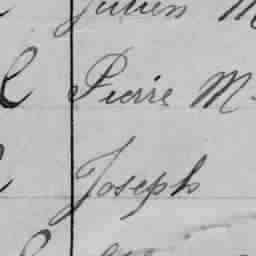 Julien M
Pierre M
Joseph